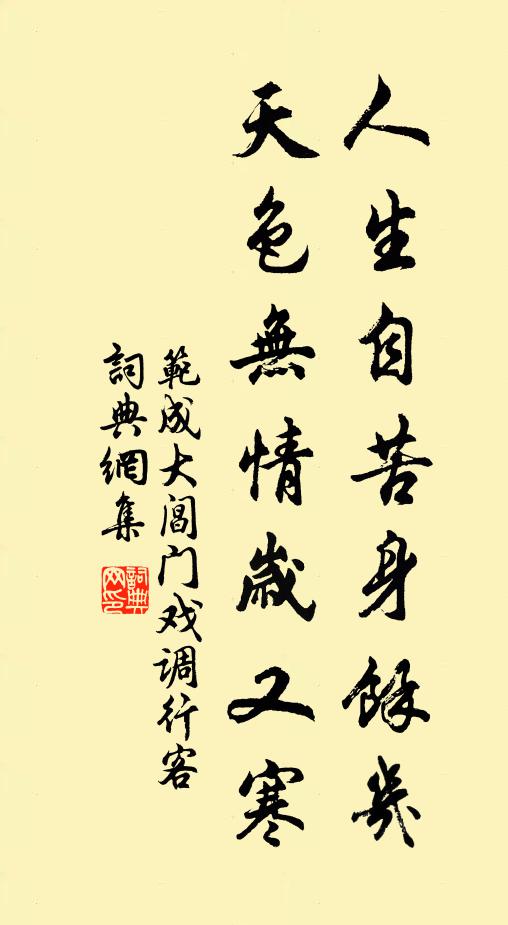 人生自苦身餘幾
天色無情歲又寒
範成大閶门戏调行客
詞典網集
詞典網印